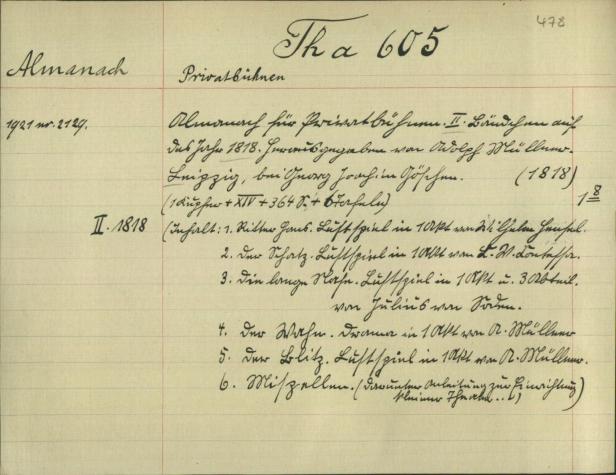 478
Th a 605
Almanach
Privatbühnen
1921 nr. 2129.
Almanach für Privatbühnen. II. Bändchen auf
das Jahr 1818. Herausgegeben von Adolph Müllner.
Leipzig, bei Georg Joachim Göschen. (1818)
1 8
(1 Kupfer + XIV + 364 S. + 6 Tafeln)
II. 1818
(Inhalt: 1. Ritter Hans. Lustspiel in 1 Akt von Wilhelm Hensel.
2. Der Schatz. Lustspiel in 1 Akt von C. W. Contessa.
3. Die lange Nase. Lustspiel in 1 Akt u. 3 Abteil.
von Julius von Soden.
4. Der Wahn. Drama in 1 Akt von A. Müllner
5. Der Blitz. Lustspiel in 1 Akt von A. Müllner.
6. Miszellen. (Darunter Anleitung zur Einrichtung
kleiner Theater...)